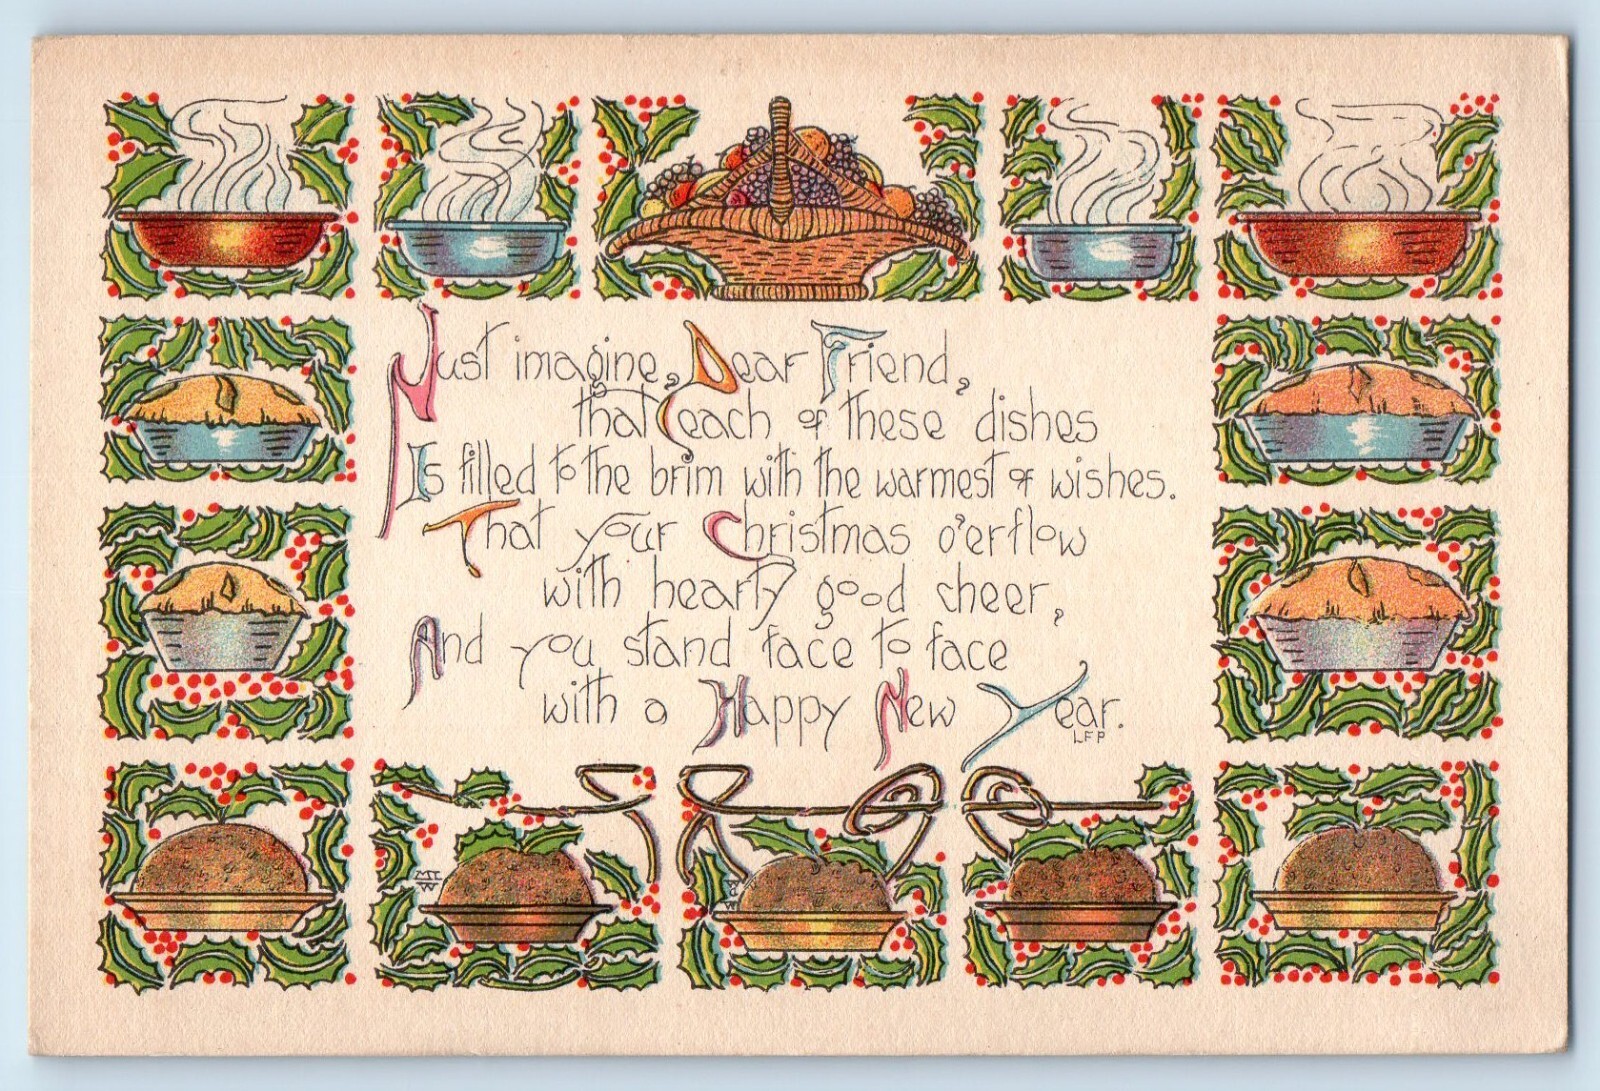 Just imagine, Dear Friend,
that each of these dishes
Is filled to the brim with the warmest of wishes.
That your Christmas o'erflow
with hearty good cheer,
And you stand face to face
with a Happy New Year.
LFP
MT
W